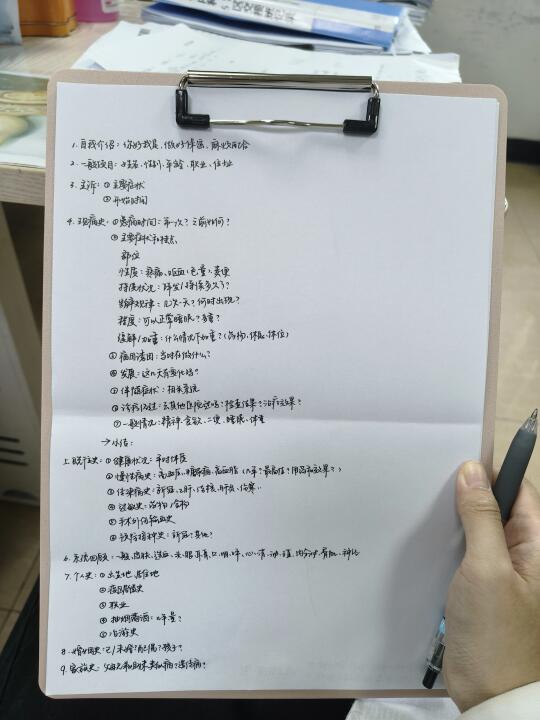 1. 自我介绍：你好我是, 做好保密, 麻烦配合
2. 一般项目：姓名、性别、年龄、职业、住址
3. 主诉：① 主要症状
② 开始时间
4. 现病史：① 患病时间：第一次？之前有吗？
② 主要症状和特点
部位
性质：疼痛、呕血（色量）、粪便
持续状况：阵发/持续多久了？
频率规律：几次一天？何时出现？
程度：可以正常睡眠？多重？
缓解/加重：什么情况下加重？（药物、休息、体位）
③ 病因诱因：当时在做什么？
④ 发展：这几天有变化吗？
⑤ 伴随症状：相关系统
⑥ 诊疗经过：去其他医院过吗？检查结果？治疗效果？
⑦ 一般情况：精神、食欲、二便、睡眠、体重
→小结：
① 健康状况：平时体质
② 慢性病史：高血压、糖尿病、高血脂（几年？最高值？用药和效果？）
③ 传染病史：新冠、乙肝、结核、肝炎、伤寒..
④ 过敏史：药物/食物
⑤ 手术外伤输血史
⑥ 预防接种史：新冠？其他？
6. 系统回顾：一般、皮肤、头、眼、耳鼻口、呼、心、消、泌、
7. 个人史：① 出生地、居住地
②
③ 职业
④ 抽烟喝酒：几年量？
⑤ 冶游史
8. 婚姻史：已/未婚？配偶？孩子？
9. 家族史：父母兄弟姐妹类似病？遗传病？